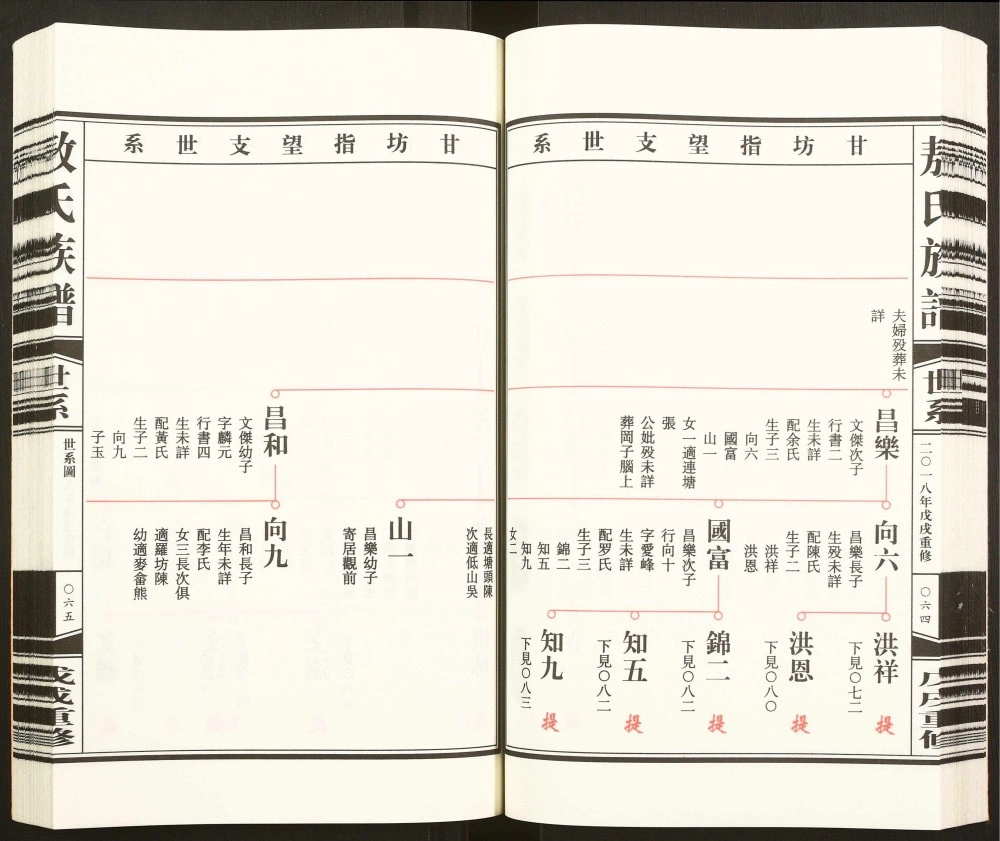 甘坊指望支世系
敖氏族譜
世系
二〇一八年戊戌重修
〇六四
戊戌重修
夫婦歿葬未
詳
昌樂
文傑次子
行書二
生未詳
配余氏
生子三
向六
國富
山一
女一適連塘
張
公妣歿未詳
葬岡子腦上
向六
昌樂長子
生歿未詳
配陳氏
生子二
洪祥
洪恩
國富
昌樂次子
行向十
字愛峰
生未詳
配罗氏
生子三
錦二
知五
知九
女二
洪祥
下見〇七二
提
洪恩
下見〇八〇
提
錦二
下見〇八二
提
知五
下見〇八二
提
知九
下見〇八三
提
甘坊指望支世系
長適塘頭陳
次適低山吳
山一
昌樂幼子
寄居觀前
昌和
文傑幼子
字麟元
行書四
生未詳
配黃氏
生子二
向九
子玉
向九
昌和長子
生年未詳
配李氏
女三長次俱
適羅坊陳
幼適麥畬熊
敖氏族譜
世系
世系圖
〇六五
戊戌重修